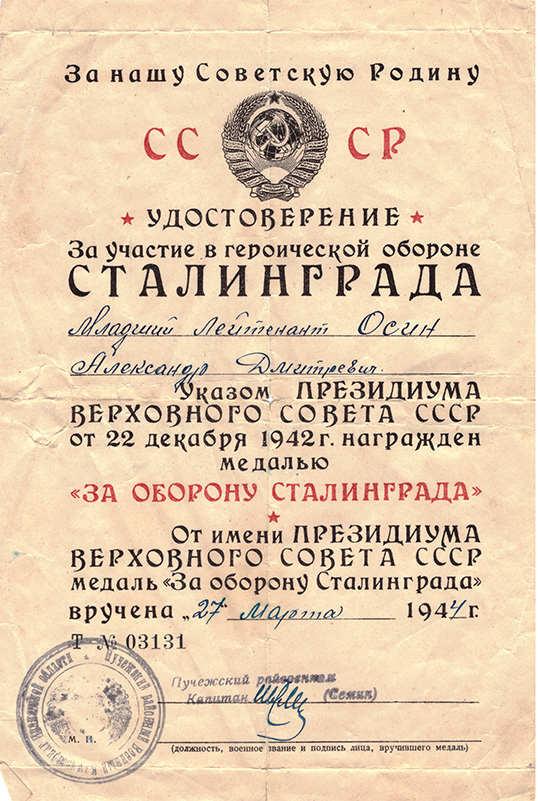 За нашу Советскую Родину
СССР
УДОСТОВЕРЕНИЕ
За участие в героической обороне
СТАЛИНГРАДА
Младший Лейтенант Осин
Александр Дмитревич.
Указом ПРЕЗИДИУМА
ВЕРХОВНОГО СОВЕТА СССР
от 22 декабря 1942 г. награжден
медалью
«ЗА ОБОРОНУ СТАЛИНГРАДА»
От имени ПРЕЗИДИУМА
ВЕРХОВНОГО СОВЕТА СССР
медаль «За оборону Сталинграда»
вручена „27" марта 1944 г.
Т № 03131
Пучежский райвоенком
Капитан (Семин)
М. П.
(должность, военное звание и подпись лица, вручившего медаль)
Пучежский районный Военный
Ивановской области